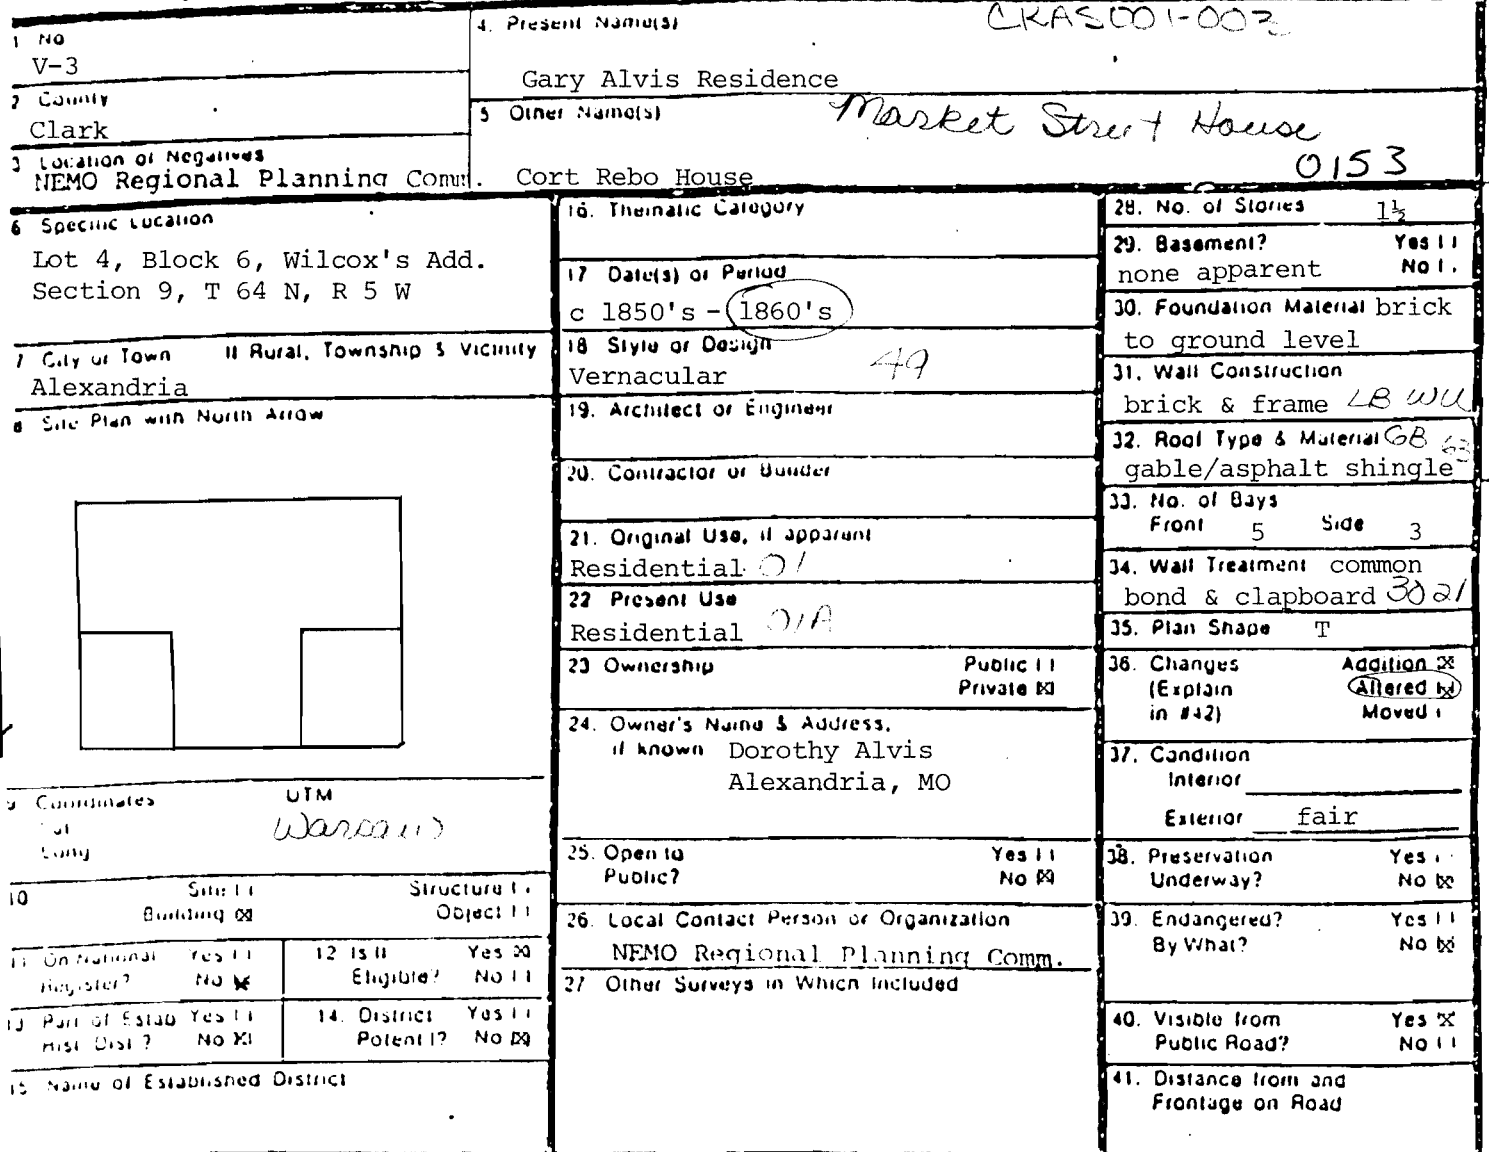 CKAS001-002
1 No
V-3
4. Present Name(s)
Gary Alvis Residence
2 County
Clark
5 Other Name(s)
Market Street House
3 Location of Negatives
NEMO Regional Planning Comm.
Cort Rebo House
0153
6 Specific Location
Lot 4, Block 6, Wilcox's Add.
Section 9, T 64 N, R 5 W
7 City or Town If Rural, Township & Vicinity
Alexandria
8 Site Plan with North Arrow
9 Coordinates UTM
Lat
Long
10 Site Structure
Building ☒ Object
11 On National Register? Yes No ☒
12 Is It Eligible? Yes ☒ No
13 Part of Estab Hist Dist? Yes No ☒
14. District Potent'l? Yes No ☒
15 Name of Established District
16. Thematic Category
17 Date(s) or Period
c 1850's - 1860's
18 Style or Design
Vernacular 49
19. Architect or Engineer
20. Contractor or Builder
21. Original Use, if apparent
Residential 01
22 Present Use
Residential 01A
23 Ownership Public
Private ☒
24. Owner's Name & Address,
if known Dorothy Alvis
Alexandria, MO
25. Open to Yes
Public? No ☒
26. Local Contact Person or Organization
NEMO Regional Planning Comm.
27 Other Surveys in Which Included
28. No. of Stories 1½
29. Basement? Yes
none apparent No
30. Foundation Material brick
to ground level
31. Wall Construction
brick & frame LB WU
32. Roof Type & Material GB 63
gable/asphalt shingle
33. No. of Bays
Front 5 Side 3
34. Wall Treatment common
bond & clapboard 30 21
35. Plan Shape T
36. Changes Addition ☒
(Explain Altered ☒
in #42) Moved
37. Condition
Interior
Exterior fair
38. Preservation Yes
Underway? No ☒
39. Endangered? Yes
By What? No ☒
40. Visible from Yes ☒
Public Road? No
41. Distance from and
Frontage on Road